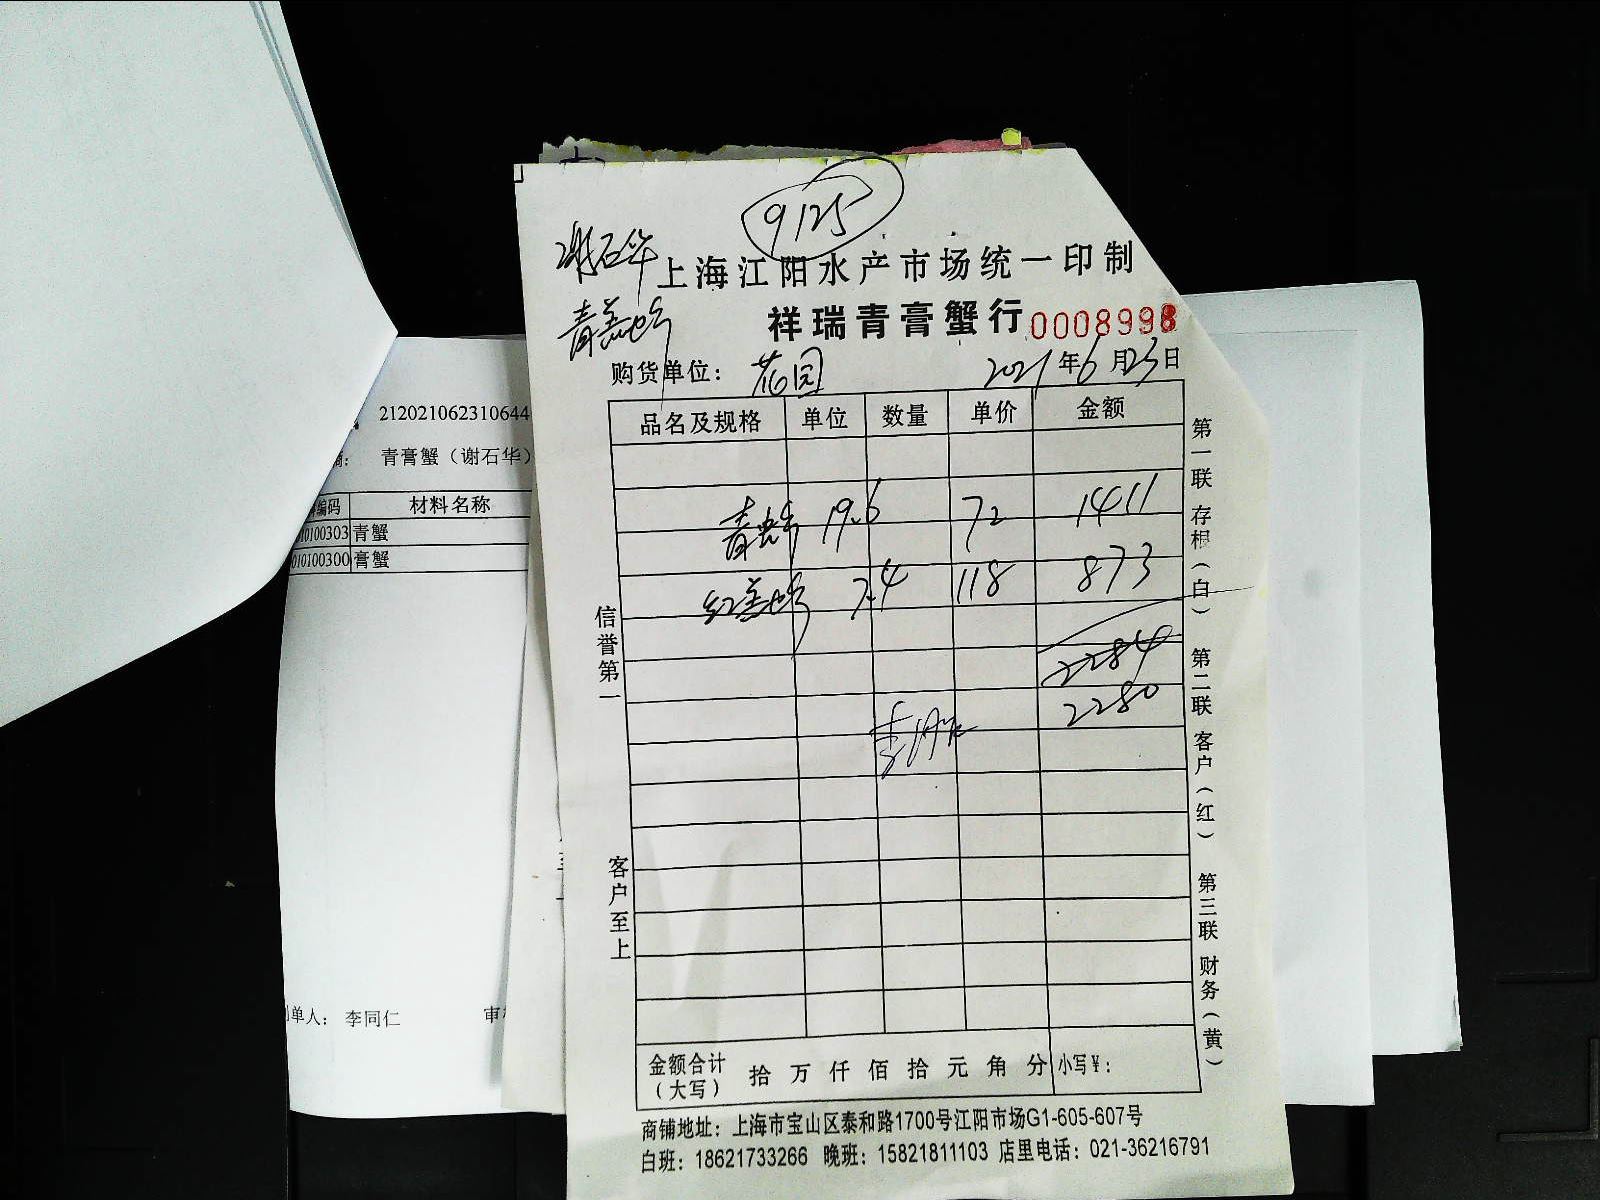 9125
谢石华
上海江阳水产市场统一印制
青膏蟹
祥瑞青膏蟹行 0008998
购货单位： 花园 2021年6月23日
品名及规格 单位 数量 单价 金额
青蟹 19.6 72 1411
红膏蟹 7.4 118 873
2284
2280
李同仁
金额合计（大写） 拾 万 仟 佰 拾 元 角 分 小写￥：
商铺地址：上海市宝山区泰和路1700号江阳市场G1-605-607号
白班：18621733266 晚班：15821811103 店里电话：021-36216791
信誉第一
客户至上
第一联 存根（白） 第二联 客户（红） 第三联 财务（黄）
212021062310644
青膏蟹（谢石华）
编码 材料名称
010100303 青蟹
010100300 膏蟹
单人： 李同仁 审